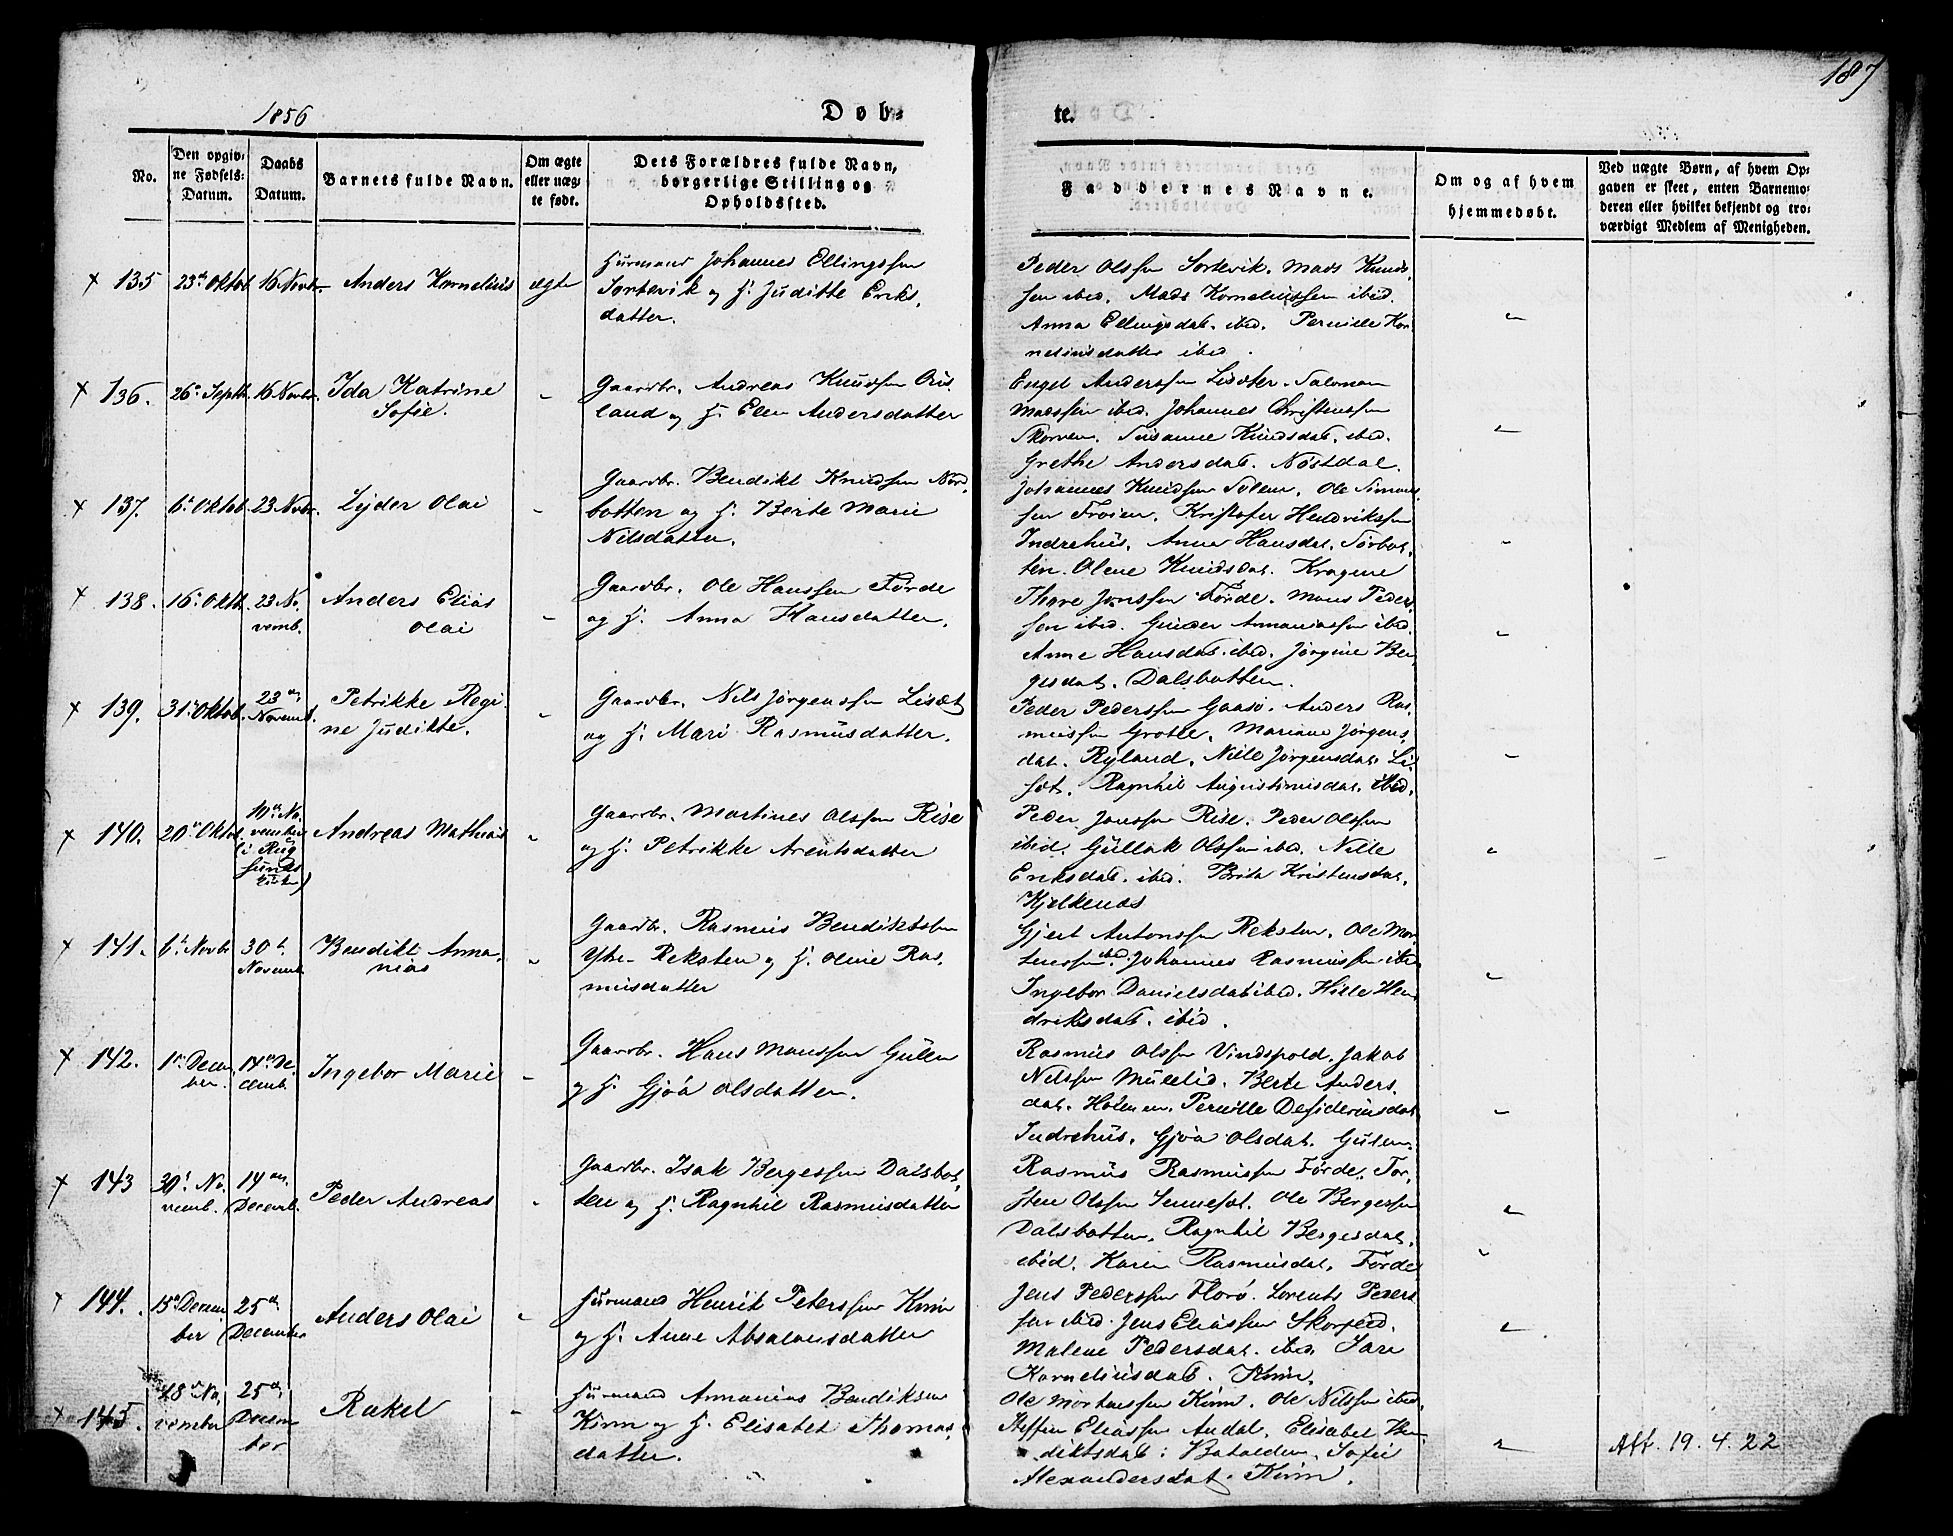 187
1856
Døb-
te.
No.
Den opgiv-
ne Fødsels-
Datum.
Daabs
Datum.
Barnets fulde Navn.
Om ægte
eller uæg-
te født.
Dets Forældres fulde Navn,
borgerlige Stilling og
Opholdssted.
Faddernes Navne.
Om og af hvem
hjemmedøbt.
Ved uægte Børn, af hvem Op-
gaven er skeet, enten Barnemo-
deren eller hvilket bekjendt og tro-
værdigt Medlem af Menigheden.
135 23de Oktob. 16 Novbr. Anders Kornelius ægte
Huusmand Johannes Ellingssen
Sørtevik og H. Juditte Eriks
datter.
Peder Olssen Sortevik. Mads Knuds
sen ibid. Mads Korneliussen ibid.
Anna Ellingsdat. ibid. Pernille Kor
neliusdatter ibid.
136. 26. Septb. 16 Novbr. Ida Katrine
Sofie.
Gaardbr. Andreas Knudsen
land og H. Elen Andersdatter
Engel Anderssen Lisæter. Salomon
Madssen ibid. Johannes Christenssen
Skorven. Susanne Knudsdat. ibid.
Grethe Andersdat. Nøstdal.
137. 6. Oktob. 23 Novbr. Lyder Olai
Gaardbr. Bendikt Knudsen Nord
botten og H. Berte Marie
Nilsdatter.
Johannes Knudsen Solem. Ole Simons
sen Frøien. Kristofer Hendrikssen
Indrehus. Anna Hansdat. Sørbot
ten. Olene Knudsdat. Kragene
138. 16. Oktb. 23 No
vemb. Anders Elias
Olai
Gaardbr. Ole Hanssen Førde
og H. Anna Hansdatter.
Thore Jonssen Førde. Mons Peders
sen ibid. Gunder Ananiassen ibid.
Anne Hansdat. ibid. Jørgine Ber
gesdat. Dalsbotten.
139. 31 Oktob. 23de
Novemb. Petrikke Regi
ne Juditte.
Gaardbr. Nils Jørgenssen Lisæt
og H. Mari Rasmusdatter.
Peder Pederssen Gaasø. Anders Ras
mussen Grotle. Mariane Jørgens
dat. Ryland. Nille Jørgensdat. Li
sæt. Ragnhil Augustinusdat. ibid.
140. 20de Oktob. 10de No
vember
(i Rug
sunds
Kirke) Andreas Mathias
Gaardbr. Martines Olssen Rise
og H. Petrikke Arentsdatter
Peder Jonssen Rise. Peder Olssen
ibid. Gullak Olssen ibid. Nille
Eriksdat. ibid. Brita Kristensdat.
Kjelkenæs
141. 6te Novbr 30te
Novemb. Bendikt Anna
nias
Gaardbr. Rasmus Bendiktssen
Ytre Reksten og H. Oline Ras
musdatter
Gjert Antonssen Reksten. Ole Mor
tenssen ibid. Johannes Rasmussen ibid
Ingebor Danielsdat ibid. Hille Hen
driksdat. ibid.
142. 1ste Decem
ber. 14de De
cemb. Ingebor Marie
Gaardbr. Hans Monssen Gulen
og H. Gjøa Olsdatter.
Rasmus Olssen Vindspold. Jakob
Nilssen Mulelid. Berte Anders
dat. Holmen. Pernille Desideriusdat
Indrehus. Gjøa Olsdat. Gulen.
143 30te No
vemb. 14de
Decemb. Peder Andreas
Gaardbr. Isak Bergessen Dalsbot
ten og H. Ragnhil Rasmusdatter
Rasmus Rasmussen Førde. Tor
sten Olssen Sennesæt. Ole Bergessen
Dalsbotten. Ragnhil Bergesdat.
ibid. Karen Rasmusdat. Førde
144. 15de Decem
ber 25de
December Anders Olai
Huusmand Henrik Peterssen Kinn
og H. Anne Absalonsdatter
Jens Pederssen Florø. Lorents Peders
sen ibid. Jens Eliassen Skorpeid.
Malene Pedersdat. ibid. Sare
Korneliusdat. Kinn.
145. 18de No
vember 25de
Decem
ber Rakel
Huusmand Annanias Bendiksen
Kinn og H. Elisabet Thomas
datter.
Ole Mortenssen Kinn. Ole Nilssen ibid.
Steffen Eliassen Andal. Elisabet Ben
diktsdat: Batalden. Sofie
Alexandersdat. Kinn.
Att. 19.4.22